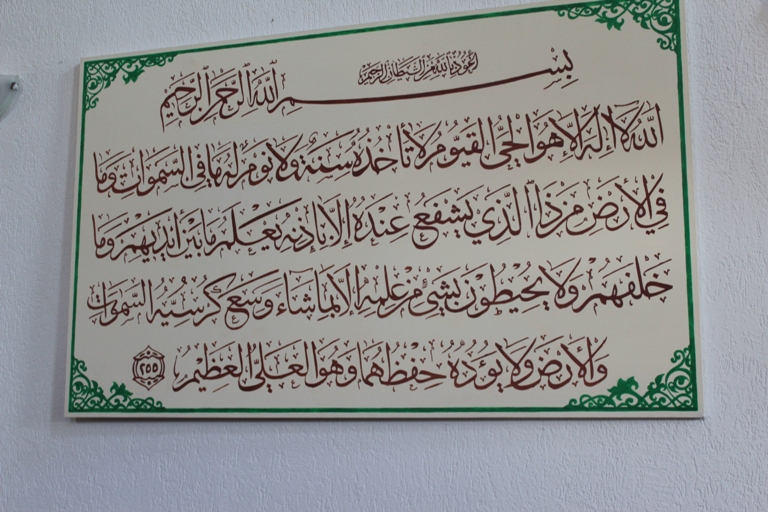 أعوذ بالله من الشيطان الرجيم
بِسْمِ اللَّهِ الرَّحْمَنِ الرَّحِيمِ
اللَّهُ لَا إِلَهَ إِلَّا هُوَ الْحَيُّ الْقَيُّومُ لَا تَأْخُذُهُ سِنَةٌ وَلَا نَوْمٌ لَهُ مَا فِي السَّمَوَاتِ وَمَا
فِي الْأَرْضِ مَنْ ذَا الَّذِي يَشْفَعُ عِنْدَهُ إِلَّا بِإِذْنِهِ يَعْلَمُ مَا بَيْنَ أَيْدِيهِمْ وَمَا
خَلْفَهُمْ وَلَا يُحِيطُونَ بِشَيْءٍ مِنْ عِلْمِهِ إِلَّا بِمَا شَاءَ وَسِعَ كُرْسِيُّهُ السَّمَوَاتِ
وَالْأَرْضَ وَلَا يَئُودُهُ حِفْظُهُمَا وَهُوَ الْعَلِيُّ الْعَظِيمُ ٢٥٥